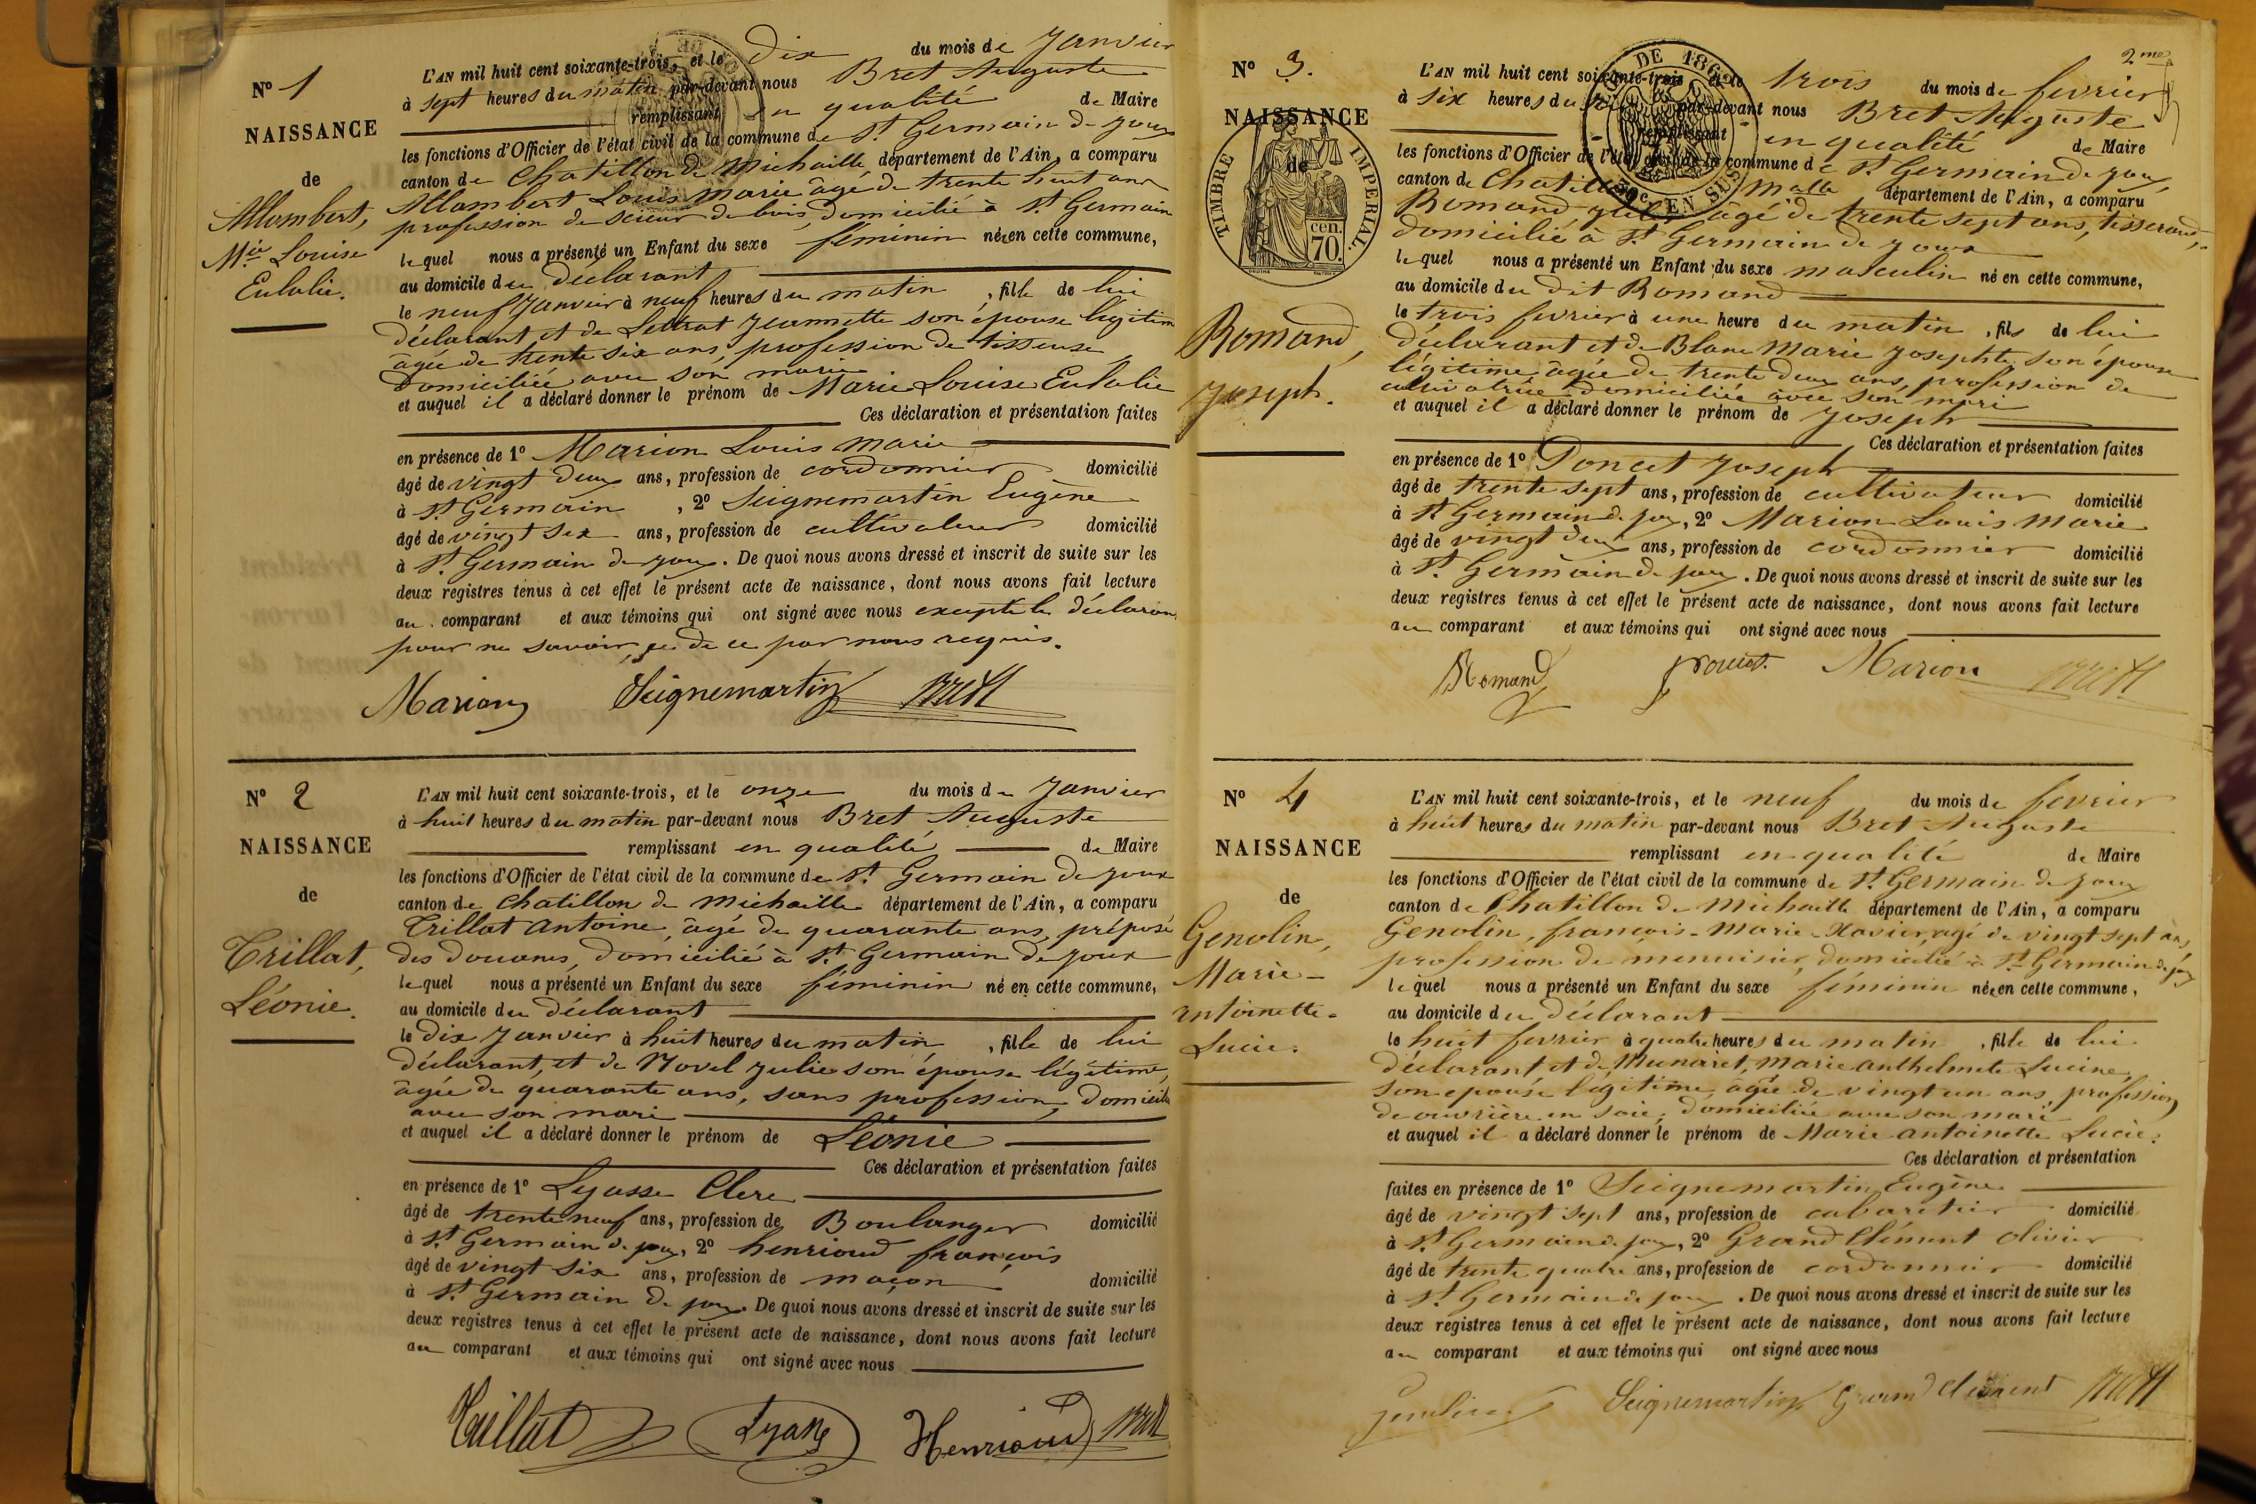 N° 1
NAISSANCE
de
Allombert,
Mie Louise
Eulalie.
L'AN mil huit cent soixante-trois, et le dix du mois de Janvier
à sept heures du matin par-devant nous Bret Auguste
remplissant en qualité de Maire
les fonctions d'Officier de l'état civil de la commune de St Germain de joux
canton de Chatillon de Michaille département de l'Ain, a comparu
Allombert Louis Marie âgé de trente huit ans
profession de scieur de bois, domicilié à St Germain
lequel nous a présenté un Enfant du sexe féminin née en cette commune,
au domicile du déclarant
le neuf Janvier à neuf heures du matin, fille de lui
déclarant et de Jeannette son épouse légitime
âgée de trente six ans, profession de tisseuse
domiciliée avec son mari
et auquel il a déclaré donner le prénom de Marie Louise Eulalie
Ces déclaration et présentation faites
en présence de 1° Marion Louis Marie
âgé de vingt deux ans, profession de cordonnier domicilié
à St Germain, 2° Seignemartin Eugène
âgé de vingt six ans, profession de cultivateur domicilié
à St Germain de joux. De quoi nous avons dressé et inscrit de suite sur les
deux registres tenus à cet effet le présent acte de naissance, dont nous avons fait lecture
au comparant et aux témoins qui ont signé avec nous excepté le déclarant
pour ne savoir, de ce par nous requis.
Marion Seignemartin Bret
N° 2
NAISSANCE
de
Trillat,
Léonie.
L'AN mil huit cent soixante-trois, et le onze du mois de Janvier
à huit heures du matin par-devant nous Bret Auguste
remplissant en qualité de Maire
les fonctions d'Officier de l'état civil de la commune de St Germain de joux
canton de Chatillon de Michaille département de l'Ain, a comparu
Trillat Antoine, âgé de quarante ans, préposé
des douanes, domicilié à St Germain de joux
lequel nous a présenté un Enfant du sexe féminin né en cette commune,
au domicile du déclarant
le dix Janvier à huit heures du matin, fille de lui
déclarant, et de Novel Julie son épouse légitime,
âgée de quarante ans, sans profession, domiciliée
avec son mari
et auquel il a déclaré donner le prénom de Léonie
Ces déclaration et présentation faites
en présence de 1° Lyasse Clere
âgé de trente neuf ans, profession de Boulanger domicilié
à St Germain de joux, 2° henrioud françois
âgé de vingt six ans, profession de maçon domicilié
à St Germain de joux. De quoi nous avons dressé et inscrit de suite sur les
deux registres tenus à cet effet le présent acte de naissance, dont nous avons fait lecture
au comparant et aux témoins qui ont signé avec nous
Trillat Lyasse Henrioud Bret
2me
N° 3.
NAISSANCE
de
TIMBRE IMPÉRIAL.
cen. 70.
Romand,
Joseph.
DE 1862
EN SUS
L'AN mil huit cent soixante-trois et le trois du mois de fevrier
à six heures du par-devant nous Bret Auguste
remplissant en qualité de Maire
les fonctions d'Officier de l'état civil de la commune de St Germain de joux,
canton de Chatillon département de l'Ain, a comparu
Romand âgé de trente sept ans, tisserand,
domicilié à St Germain de joux
lequel nous a présenté un Enfant du sexe masculin né en cette commune,
au domicile du dit Romand
le trois fevrier à une heure du matin, fils de lui
déclarant et de Blanc Marie Josephte son épouse
légitime âgée de trente deux ans, profession de
cultivatrice domiciliée avec son mari
et auquel il a déclaré donner le prénom de Joseph
Ces déclaration et présentation faites
en présence de 1° Poncet Joseph
âgé de trente sept ans, profession de cultivateur domicilié
à St Germain de joux, 2° Marion Louis Marie
âgé de vingt deux ans, profession de cordonnier domicilié
à St Germain de joux. De quoi nous avons dressé et inscrit de suite sur les
deux registres tenus à cet effet le présent acte de naissance, dont nous avons fait lecture
au comparant et aux témoins qui ont signé avec nous
Romand Poncet Marion Bret
N° 4
NAISSANCE
de
Genolin,
Marie-
Antoinette-
Lucie.
L'AN mil huit cent soixante-trois, et le neuf du mois de fevrier
à huit heures du matin par-devant nous Bret Auguste
remplissant en qualité de Maire
les fonctions d'Officier de l'état civil de la commune de St Germain de joux
canton de Chatillon de Michaille département de l'Ain, a comparu
Genolin, françois-Marie-Xavier, âgé de vingt sept ans,
profession de menuisier, domicilié à St Germain de joux
lequel nous a présenté un Enfant du sexe féminin née en cette commune,
au domicile du déclarant
le huit fevrier à quatre heures du matin, fille de lui
déclarant et de Munaret, Marie Anthelmette Lucine,
son epouse légitime âgée de vingt un ans, profession
de ouvrière en soie, domiciliée avec son mari
et auquel il a déclaré donner le prénom de Marie Antoinette Lucie.
Ces déclaration et présentation
faites en présence de 1° Seignemartin Eugène
âgé de vingt sept ans, profession de cabaretier domicilié
à St Germain de joux, 2° Grand Clément Olivier
âgé de trente quatre ans, profession de cordonnier domicilié
à St Germain de joux. De quoi nous avons dressé et inscrit de suite sur les
deux registres tenus à cet effet le présent acte de naissance, dont nous avons fait lecture
au comparant et aux témoins qui ont signé avec nous
Genolin Seignemartin Grand Clement Bret